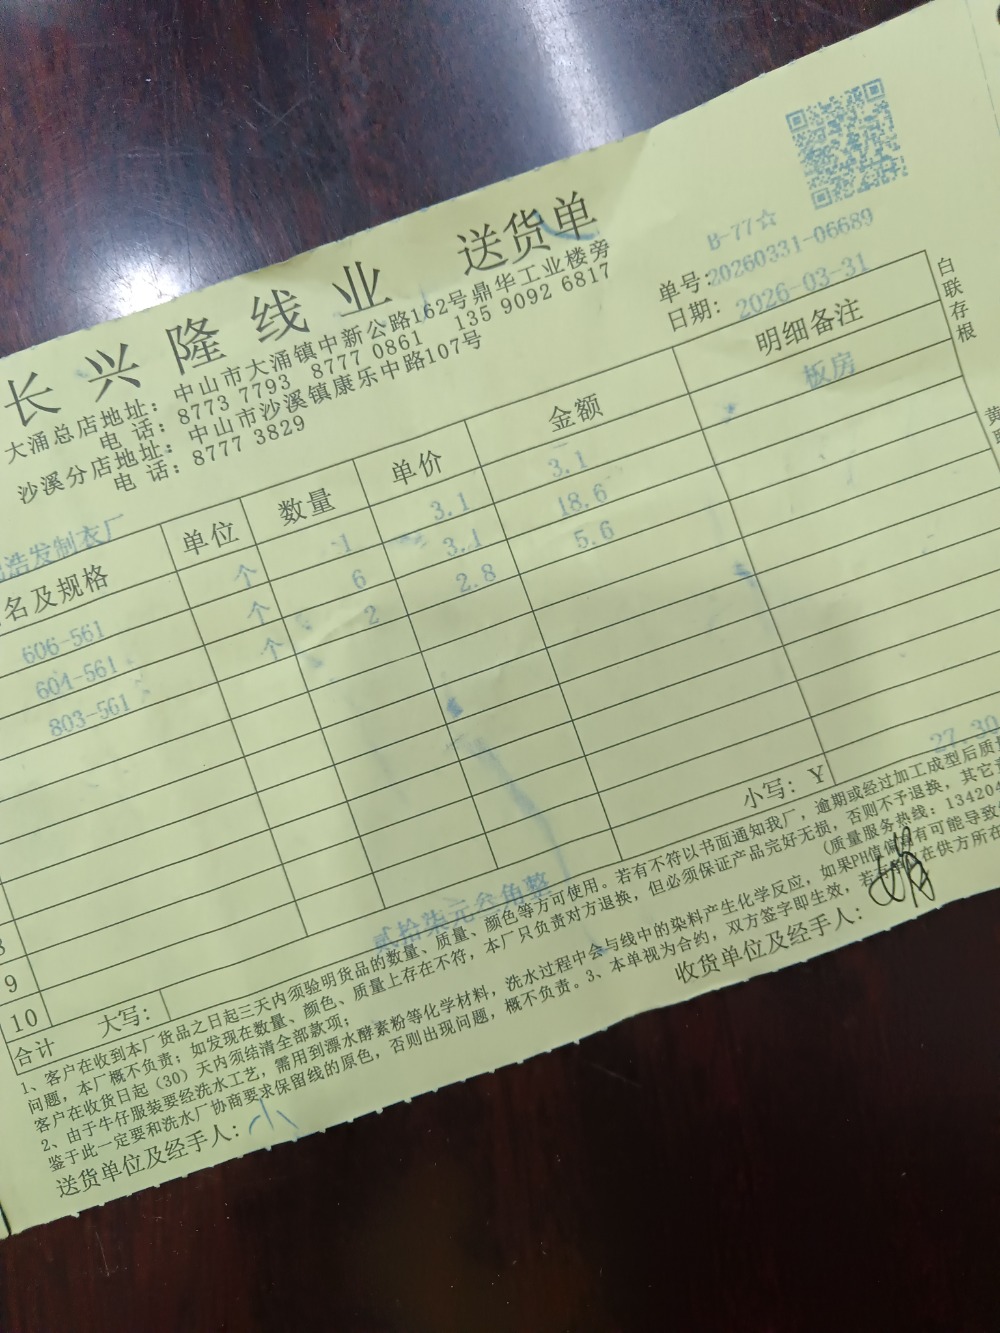 长兴隆线业 送货单
大涌总店地址：中山市大涌镇中新公路162号鼎华工业楼旁
电 话：8773 7793 8777 0861 135 9092 6817
沙溪分店地址：中山市沙溪镇康乐中路107号
电 话：8777 3829
B-77☆
单号：20260331-06689
日期：2026-03-31
浩发制衣厂
名及规格 单位 数量 单价 金额 明细备注
606-561 个 1 3.1 3.1 板房
601-561 个 6 3.1 18.6
803-561 个 2 2.8 5.6
9
10
合计 大写： 贰拾柒元叁角整 小写：￥ 27.30
1、客户在收到本厂货品之日起三天内须验明货品的数量、质量、颜色等方可使用。若有不符以书面通知我厂，逾期或经过加工成型后质
问题，本厂概不负责；如发现在数量、颜色、质量上存在不符，本厂只负责对方退换，但必须保证产品完好无损，否则不予退换，其它
客户在收货日起（30）天内须结清全部款项； （质量服务热线：13420
2、由于牛仔服装要经洗水工艺，需用到漂水酵素粉等化学材料，洗水过程中会与线中的染料产生化学反应，如果PH值偏 有可能导致
鉴于此一定要和洗水厂协商要求保留线的原色，否则出现问题，概不负责。3、本单视为合约，双方签字即生效，若 在供方所在
送货单位及经手人： 小 收货单位及经手人：
白联存根
黄